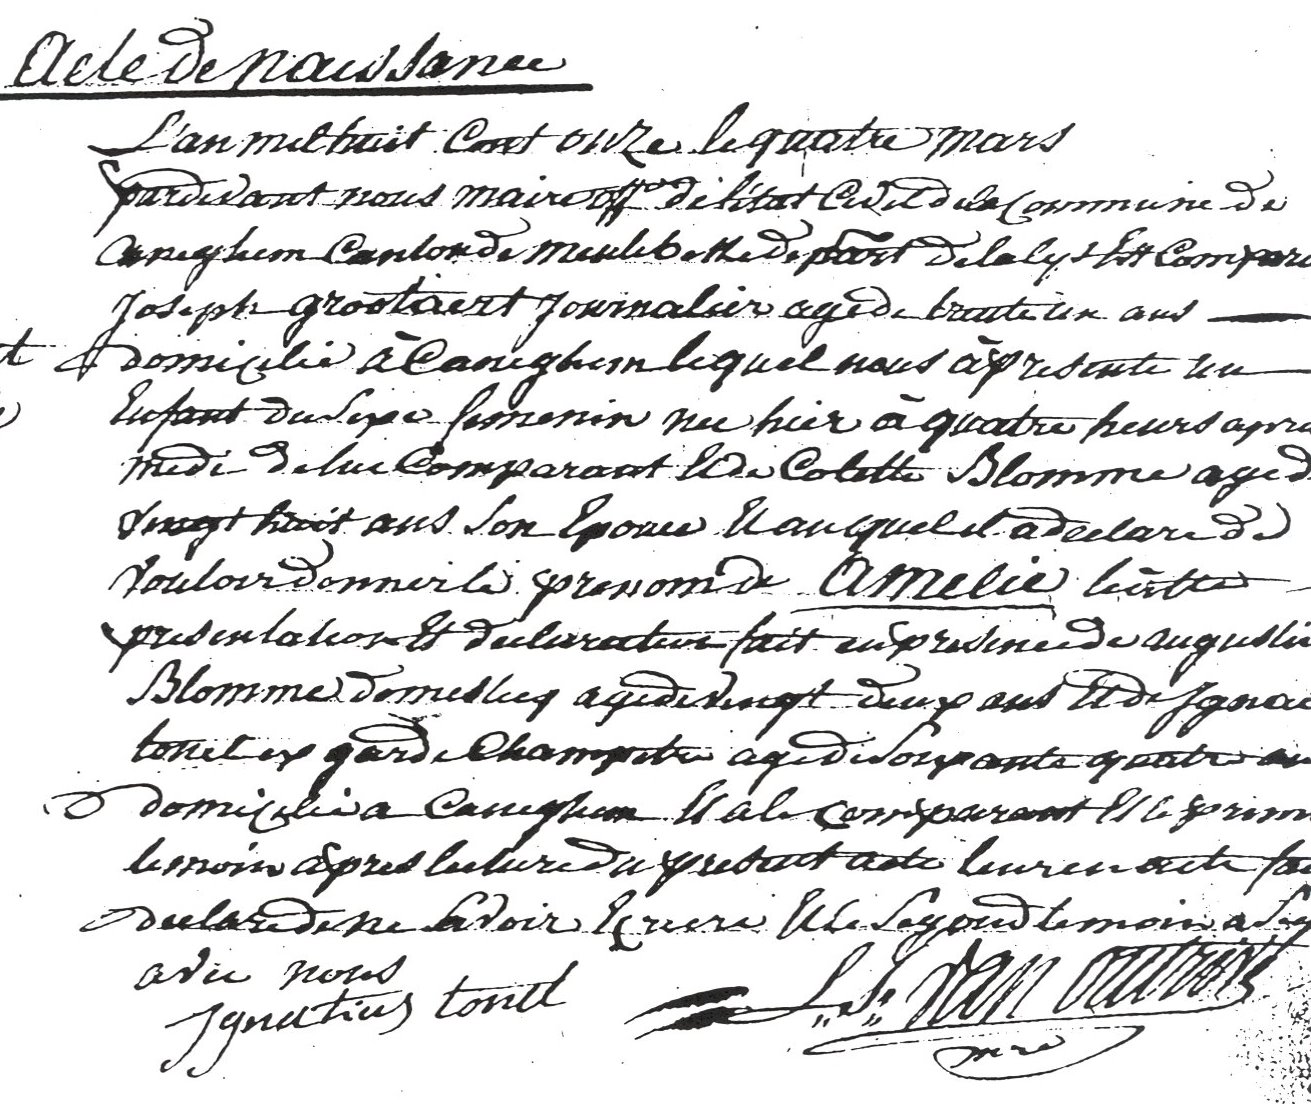 Acte de naissance
L'an mil huit Cent onze le quatre mars
pardevant nous maire offr de l'état Civil de la Commune de
Caneghem Canton de meulebeke depart de la lys Est Compar
Joseph grootaert Journalier agé de trente un ans
domicilié à Caneghem lequel nous à presente un
Enfant du Sexe femenin nee hier à quatre heurs apre
medi de lui Comparant Et de Colette Blomme agé d
vingt huit ans Son Epouse Et auquel il a declare de
vouloir donner le prenom de Amelie
presentation Et declaration fait en presence de augustin
Blomme domestiq agé de vingt deux ans Et de Ignac
tonel garde Champetre agé de Soixante quatre an
domicilié a Caneghem Et a le comparant Et le prem
temoin àpres lecture du present acte leur en acte fai
declaré de ne Savoir Ecrire Et le Segond temoin a Sig
avec nous
Ignatius tonel L. J. Van
mre